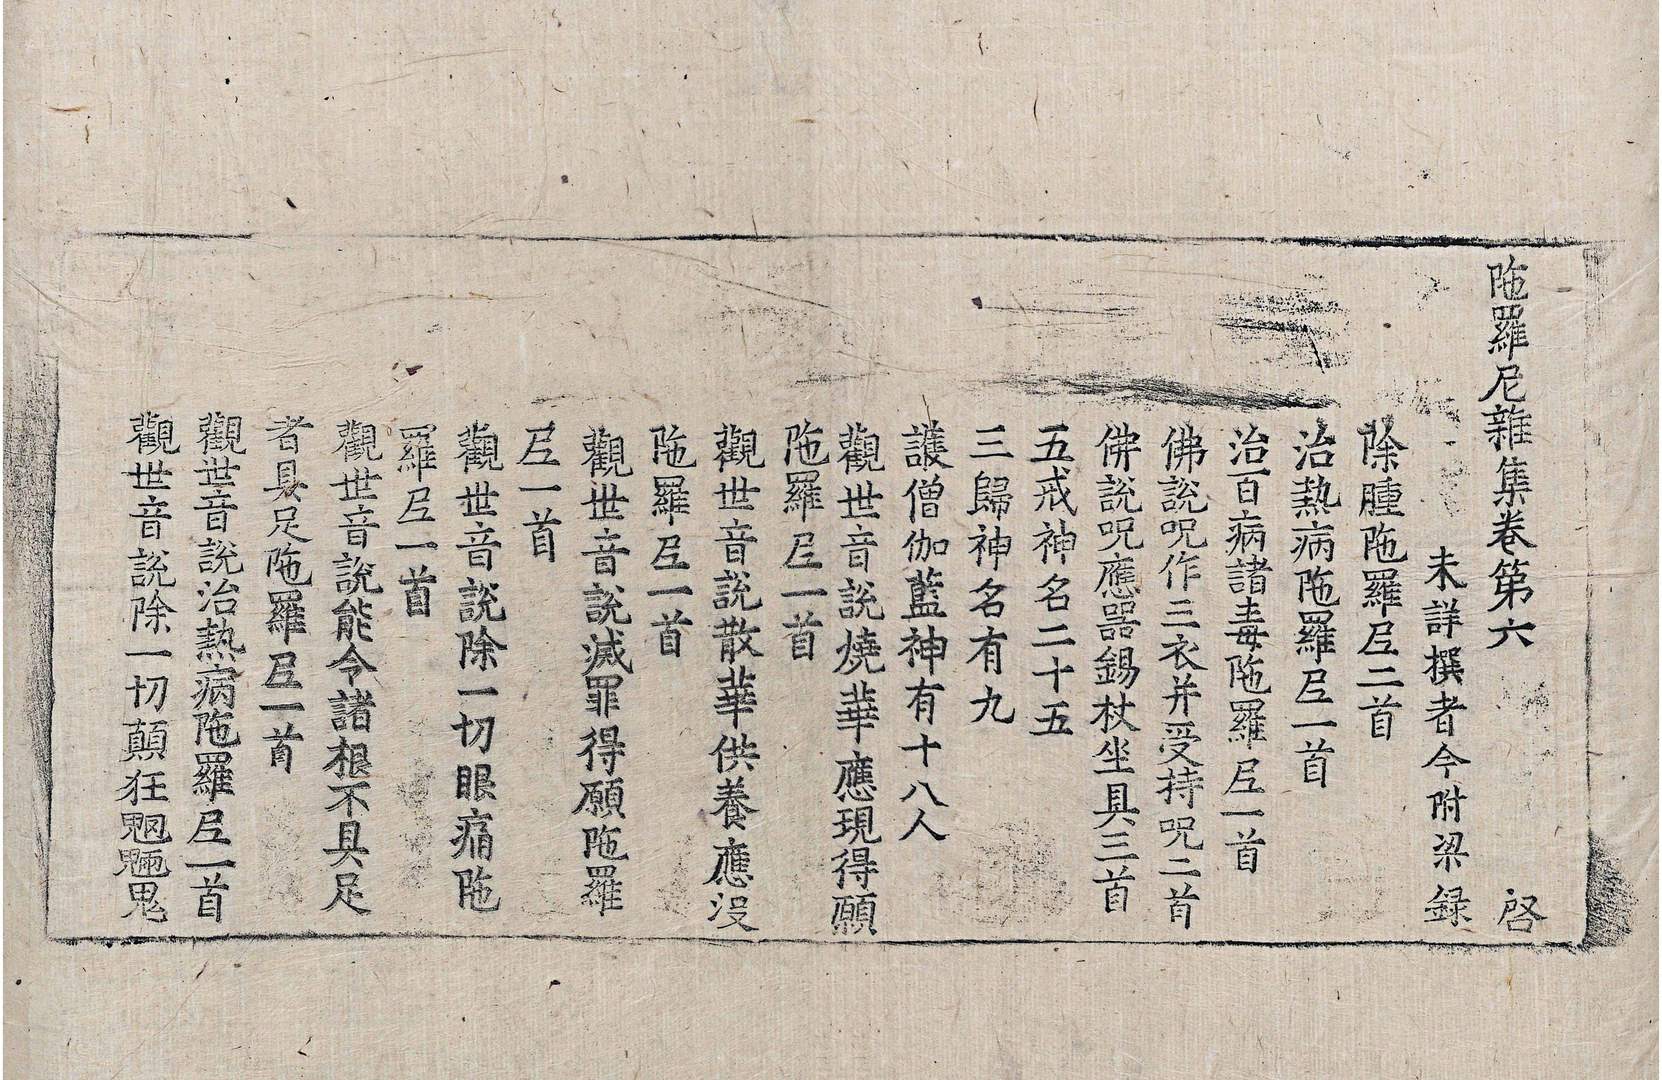 陁羅尼雜集卷第六 啓
未詳撰者今附梁録
除腫陁羅尼二首
治熱病陁羅尼一首
治百病諸毒陁羅尼一首
佛說呪作三衣并受持呪二首
佛說呪應器錫杖坐具三首
五戒神名二十五
三歸神名有九
護僧伽藍神有十八人
觀世音說燒華應現得願
陁羅尼一首
觀世音說散華供養應沒
陁羅尼一首
觀世音說滅罪得願陁羅
尼一首
觀世音說除一切眼痛陁
羅尼一首
觀世音說能令諸根不具足
者具足陁羅尼一首
觀世音說治熱病陁羅尼一首
觀世音說除一切顛狂魍魎鬼